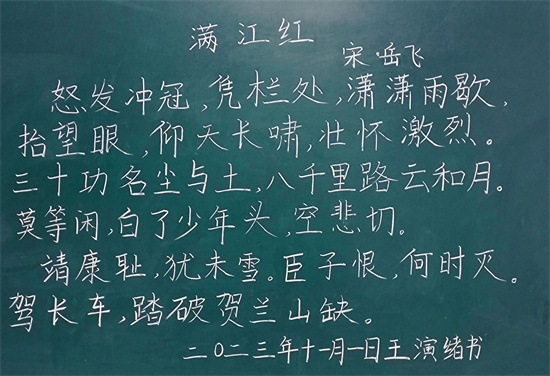 满江红
宋·岳飞
怒发冲冠，凭栏处，潇潇雨歇，
抬望眼，仰天长啸，壮怀激烈。
三十功名尘与土，八千里路云和月。
莫等闲，白了少年头，空悲切。
靖康耻，犹未雪。臣子恨，何时灭。
驾长车，踏破贺兰山缺。
二〇二三年十一月一日王演绪书